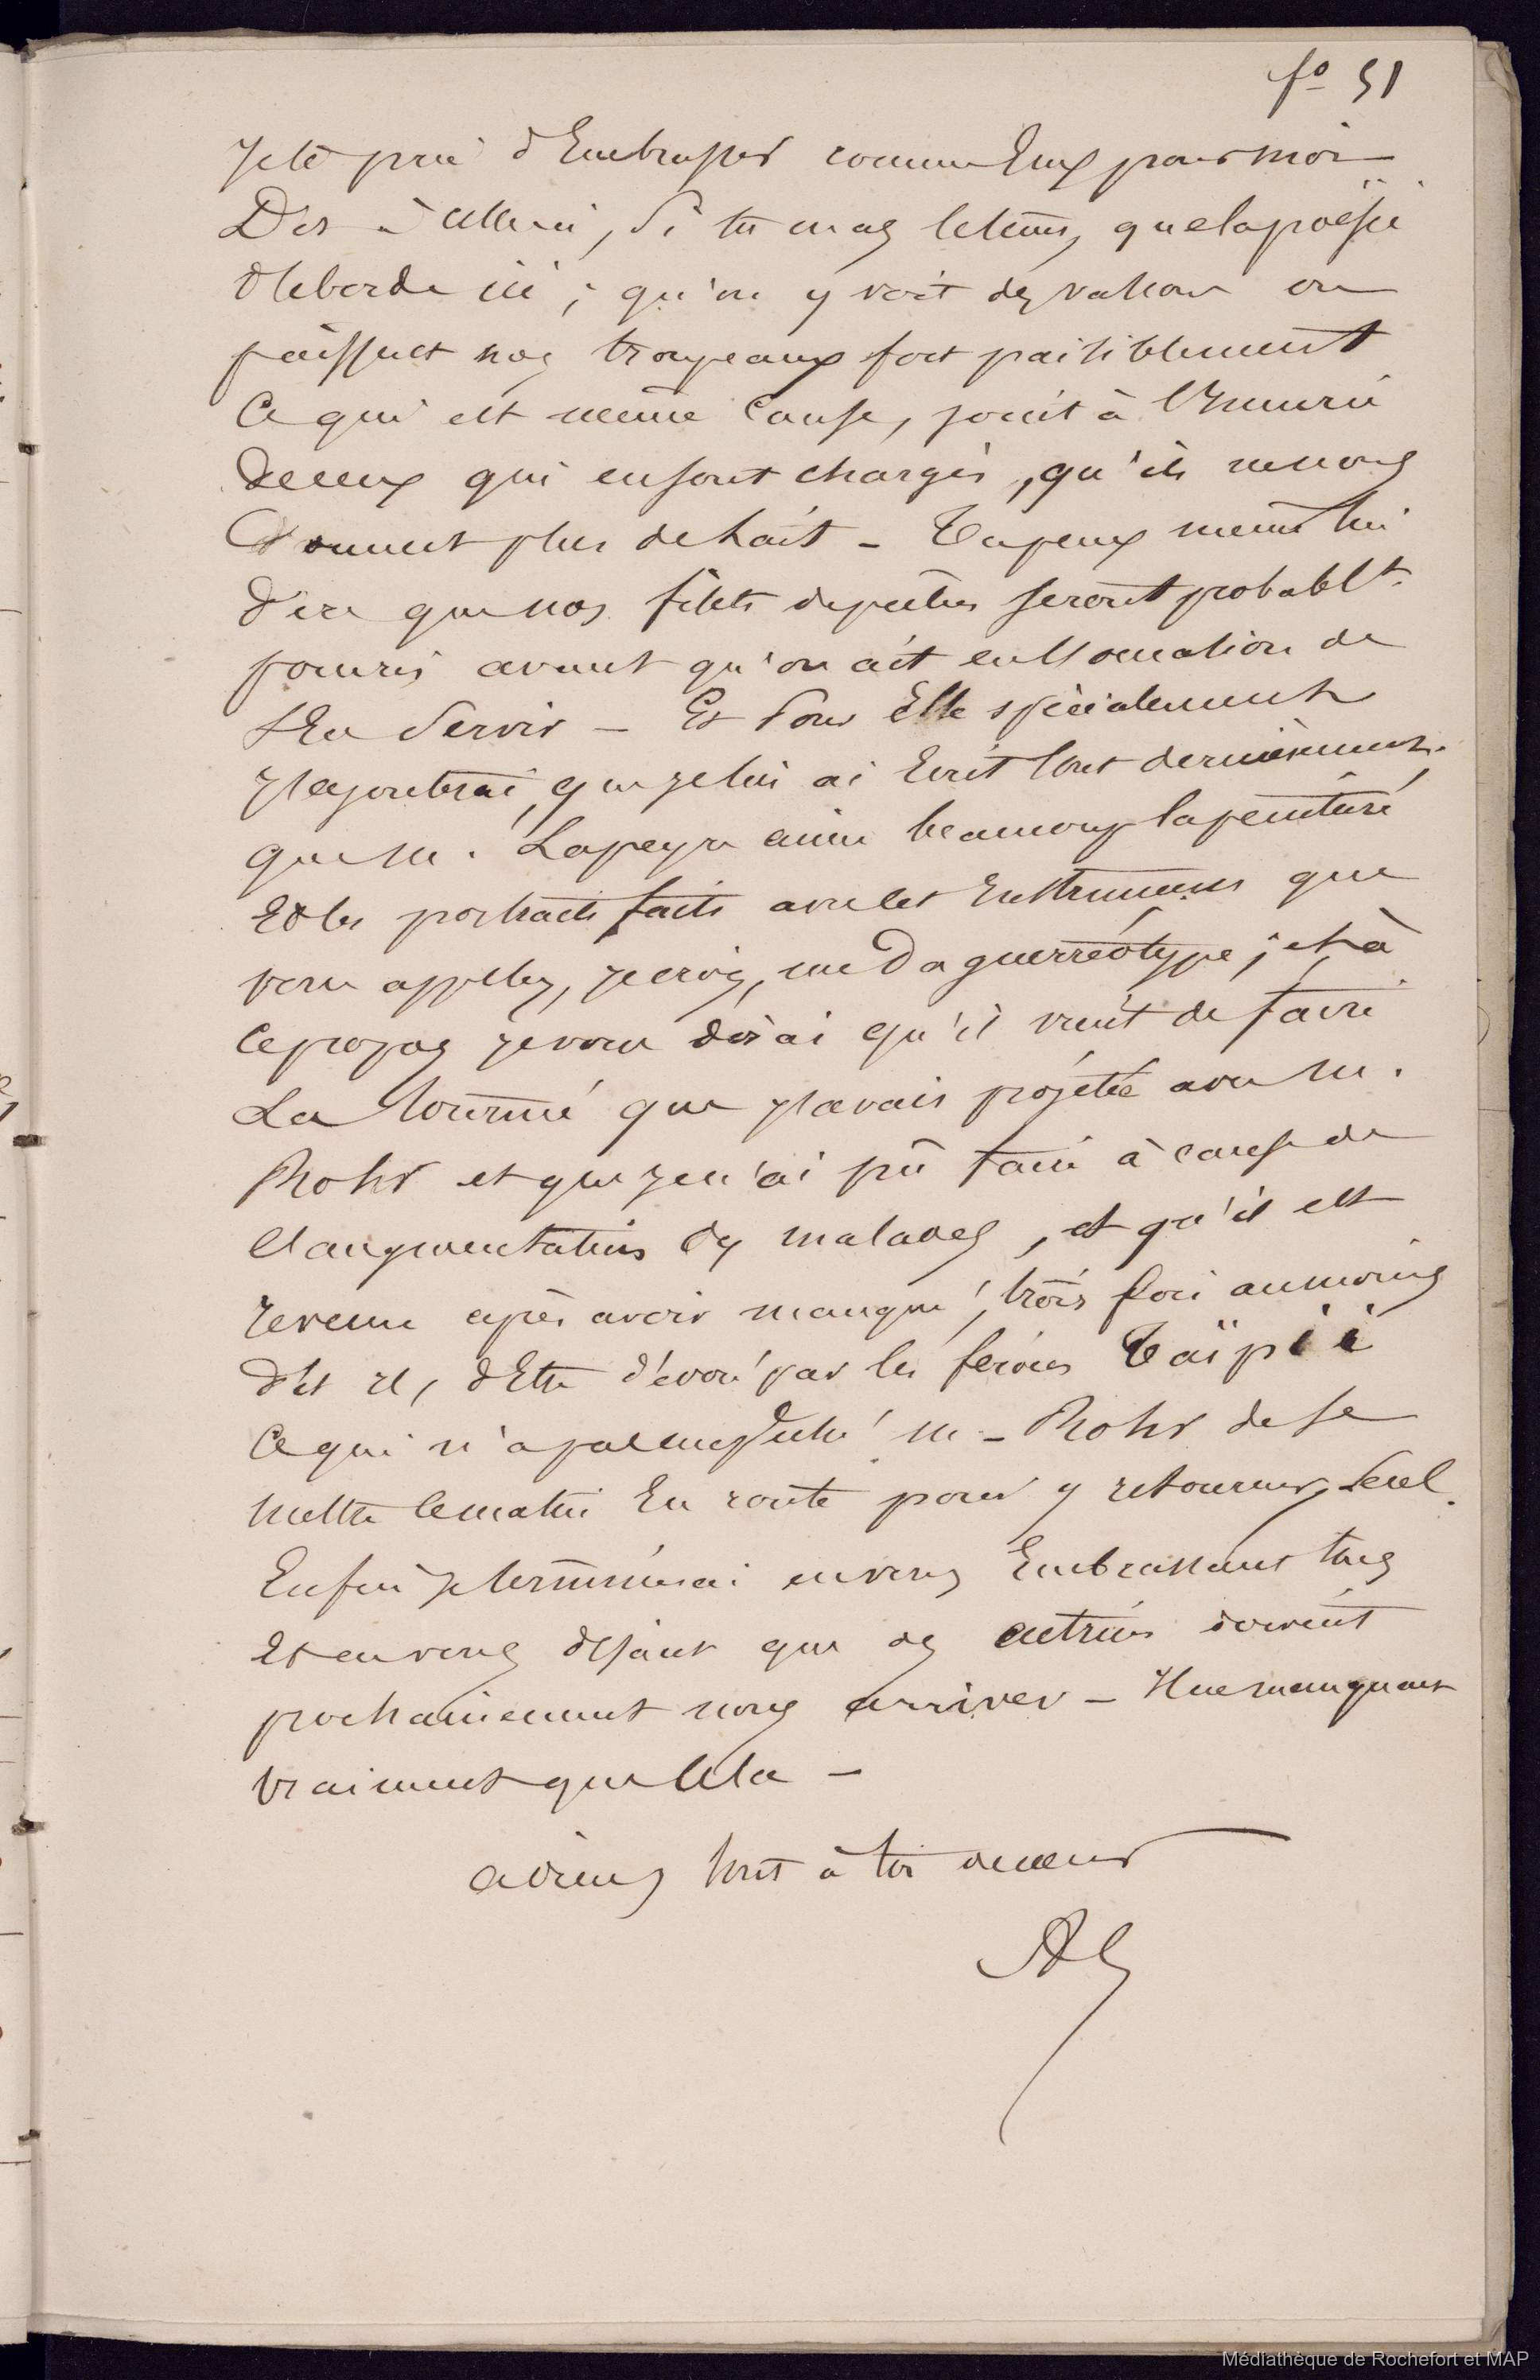 fo 51
Je te prie d'Embrasser comme Eux pour moi
Dis à , si tu en as le tems, que la poësie
déborde ici ; qu'on y voit des vallons où
paissent nos troupeaux fort paisiblement
Ce qui est même Cause, joint à l'Incurie
de ceux qui en sont chargés, qu'ils ne nous
donnent plus de lait - Tu peux même lui
dire que nos filets de pêches seront probablt
pourris avant qu'on ait eu l'occasion de
s'En Servir - Et pour Elle spécialement
J'ajouterai, que je lui ai Ecrit tout dernièrement.
que M. Lapeyre aime beaucoup la peinture
Et les portraits faits avec les Instrumens que
vous appellez, je crois, un Daguerréotype ; et à
ce propos je vous dirai qu'il vient de faire
La tournée que j'avais projetée avec M.
Rohr et que je n'ai pû faire à cause de
l'augmentation des malades, et qu'il est
revenu après avoir manqué, trois fois au moins
dit il, d'Etre dévoré par les féroces Taïpii
Ce qui n'a pas empêché M - Rohr de se
mettre ce matin En route pour y retourner, Seul.
Enfin je terminerai en vous Embrassant tous
Et en vous disant que des doivent
prochainement nous arriver - Il ne manquait
vraiment que Cela -
adieu, tout à toi de cœur